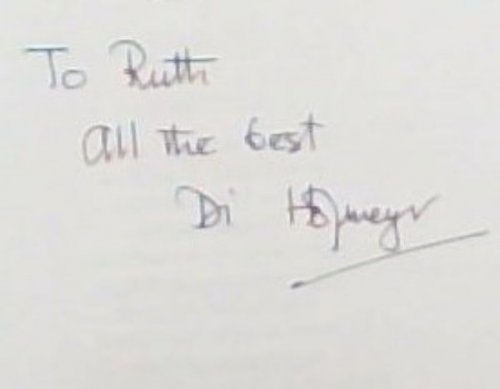 To Ruth
All the best
Di Hofmeyr